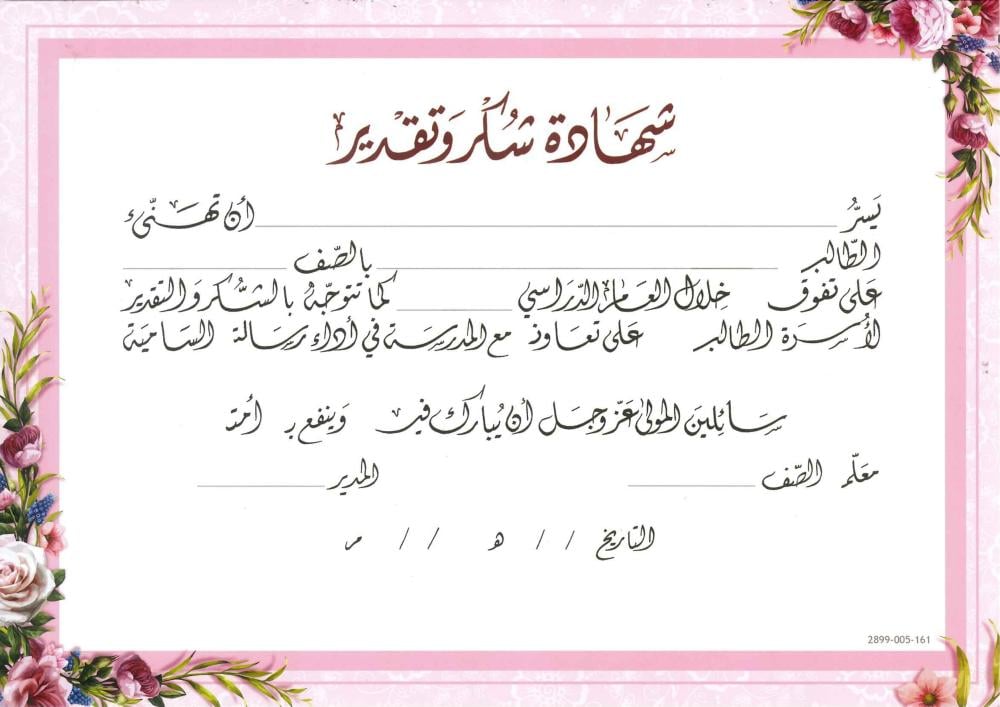 شهادة شُكر وَتقدير
يَسرُّ ____________ أن تهَنّىء
الطّالب ____________ بالصّف ____________
على تفوق خلال العَام الدّرَاسي ____________ كما تتوجّه بالشّكر وَالتقدير
لأسرَة الطالب على تعَاون مع المدرسَة في أداء رسَالة السَامية
سَائِلينَ المولىٰ عَزّ وجَل أن يُبارك فيـ وَينفع بـ أمتـ
معَلّم الصّف ____________ المدير ____________
التاريخ / / هـ / / م
2899-005-161